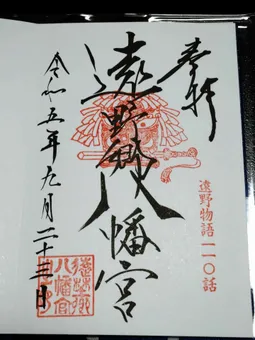 奉拝
遠野物語一一〇話
遠野郷八幡宮
令和五年九月二十三日